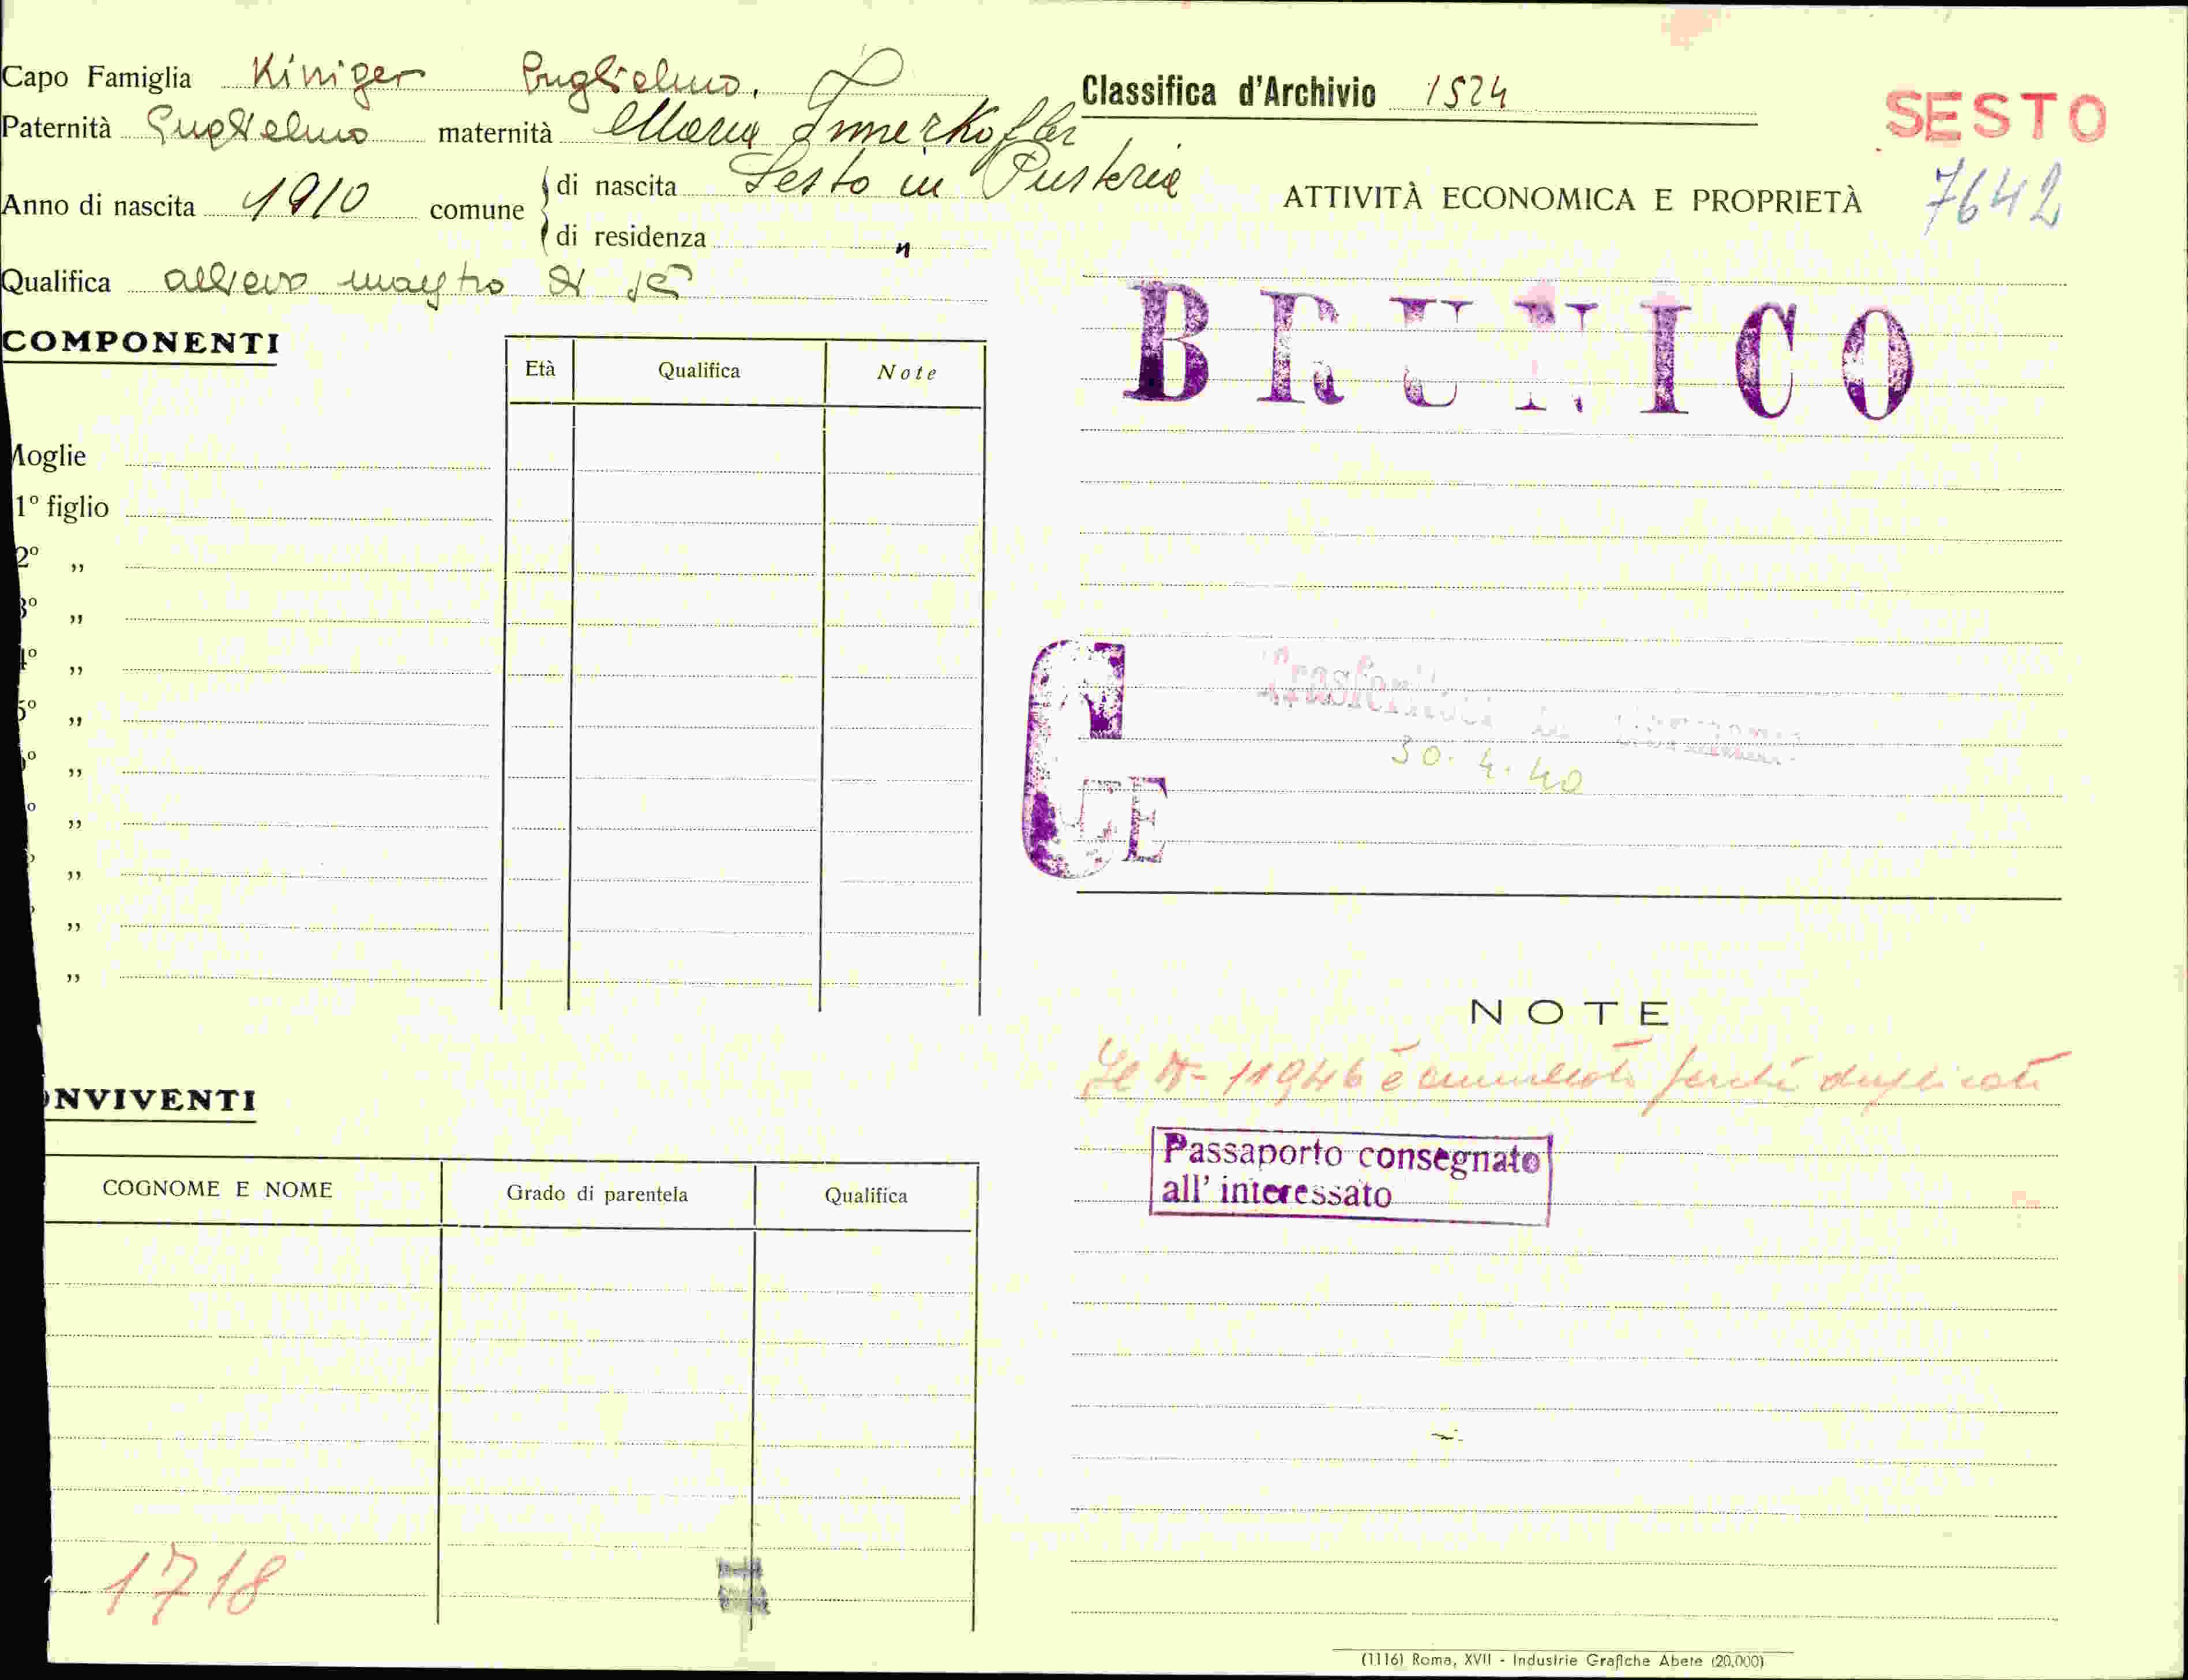 Capo Famiglia Kiniger Guglielmo,
Paternità Guglielmo maternità Maria Innerkofler
Anno di nascita 1910 comune di nascita Sesto in Pusteria
di residenza "
Qualifica allievo maestro di sci
COMPONENTI
Età Qualifica Note
Moglie
1º figlio
2º „
3º „
4º „
5º „
º „
º „
„
„
„
ONVIVENTI
COGNOME E NOME Grado di parentela Qualifica
1718
Classifica d'Archivio 1524
SESTO
7642
ATTIVITÀ ECONOMICA E PROPRIETÀ
BRUNICO
Trasferitosi in
30.4.40
G
TE
NOTE
Il N= 11946 è annullato perché duplicato
Passaporto consegnato
all' interessato
(1116) Roma, XVII - Industrie Grafiche Abete (20.000)